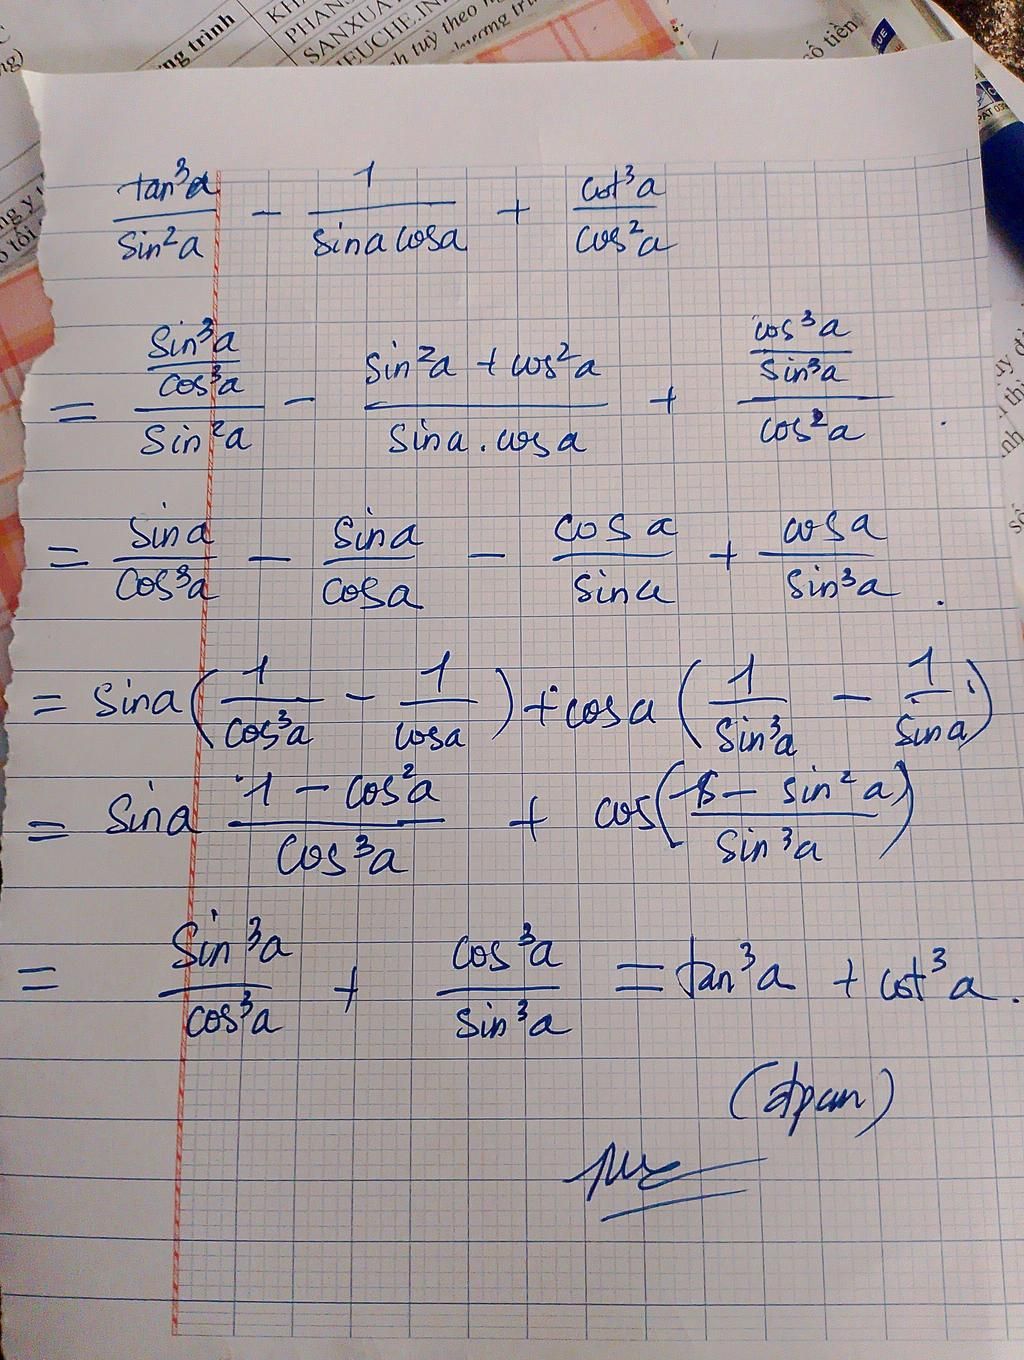 ng trình KH
PHAN
SANXUA
IEUCHE.IN
số tiền
tan³a/sin²a - 1/sina cosa + cot³a/cos²a
= (sin³a/cos³a)/sin²a - (sin²a + cos²a)/(sina . cosa) + (cos³a/sin³a)/cos²a .
= sina/cos³a - sina/cosa - cosa/sina + cosa/sin³a .
= sina (1/cos³a - 1/cosa) + cosa (1/sin³a - 1/sina)
= sina (1 - cos²a)/cos³a + cos (1 - sin²a)/sin³a
= sin³a/cos³a + cos³a/sin³a = tan³a + cot³a .
(đpcm)